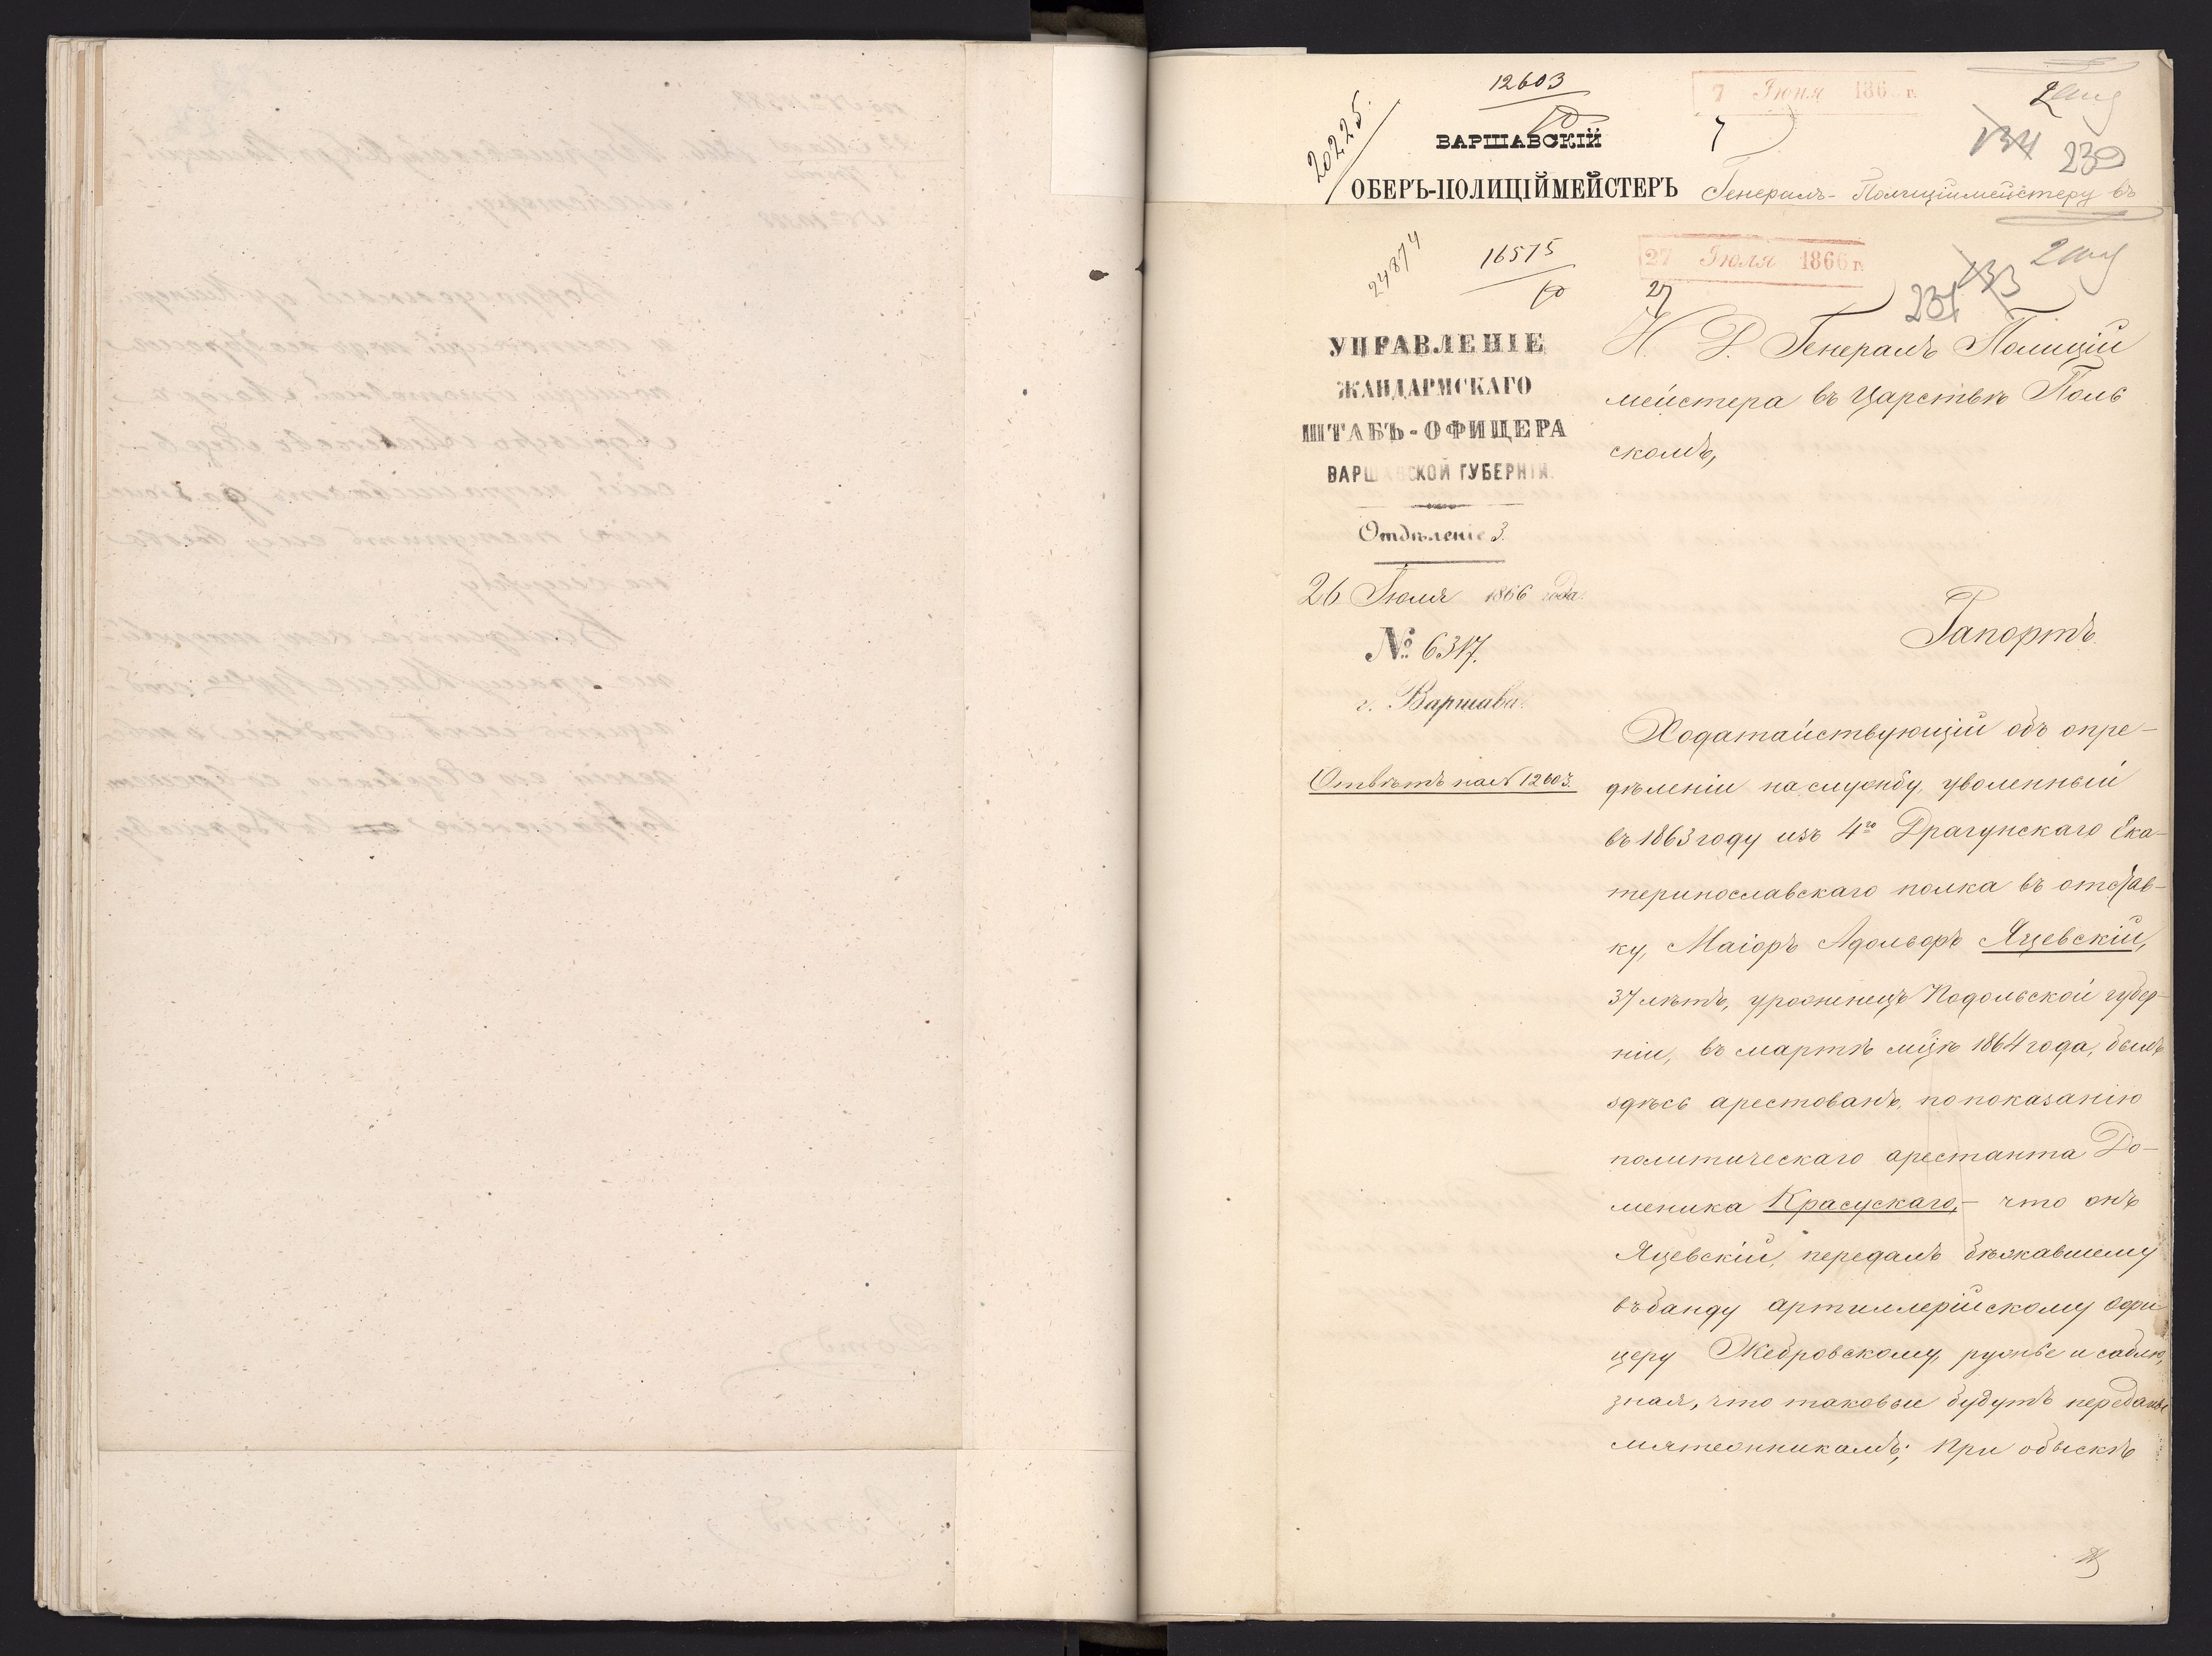 12603
20225.
10
7 Іюня 186 г.
7
134 230
ВАРШАВСКІЙ
ОБЕРЪ-ПОЛИЦІЙМЕЙСТЕРЪ
Генералъ-Полиціймейстеру въ
24874
16575
10
27 Іюля 1866 г.
27
133
231
УПРАВЛЕНІЕ
ЖАНДАРМСКАГО
ШТАБЪ-ОФИЦЕРА
ВАРШАВСКОЙ ГУБЕРНІИ.
Отдѣленіе 3.
26 Іюля 1866 года.
№ 6317.
г. Варшава.
Отвѣтъ на № 12603.
И. Д. Генералъ Полицій
мейстера въ Царствѣ Поль
скомъ,
Рапортъ.
Ходатайствующій объ опре-
дѣленіи на службу, уволенный
въ 1863 году изъ 4го Драгунскаго Ека-
теринославскаго полка въ отстав-
ку, Маіоръ Адольфъ Яцевскій,
37 лѣтъ, уроженецъ Подольской губер-
ніи, въ мартѣ мцѣ 1864 года, былъ
здѣсь арестованъ, по показанію
политическаго арестанта До-
меника Красускаго,- что онъ
Яцевскій, передалъ бѣжавшему
въ банду артиллерійскому офи-
церу Жебровскому, ружье и саблю,
зная, что таковые будутъ переданы
мятежникамъ; при обыскѣ